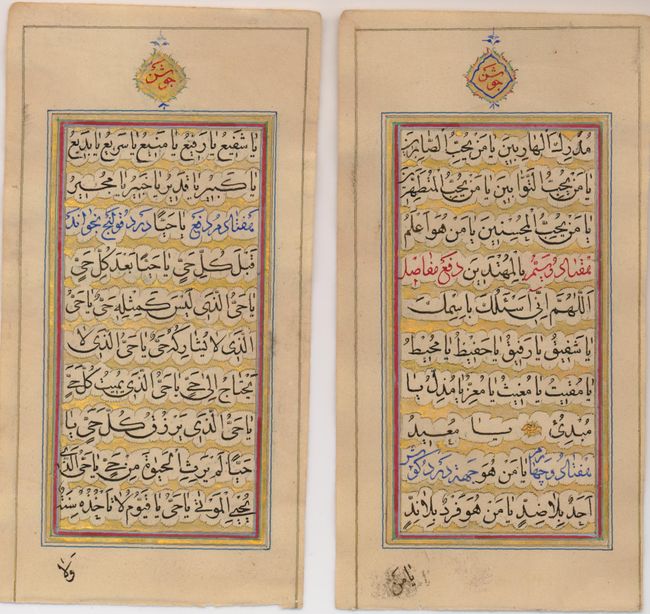 جوشن
مدرك الهاربين يا من يحب الصابرين
يا من يحب التوابين يا من يحب المتطهرين
يا من يحب المحسنين يا من هو اعلم
هفتاد و سیم بالمهتدين دفع مفاصل
اللهم اني اسئلك باسمك
يا شفيق يا رفيق يا حفيظ يا محيط
يا مقيت يا مغيث يا معز يا مذل يا
مبدئ يا معيد
هفتاد و چهارم يا من هو جهة درد گوش
احد بلا ضد يا من هو فرد بلا ند
يا من
جوشن
يا شفيع يا رفيع يا منيع يا سريع يا بديع
يا كبير يا قدير يا خبير يا مجير
هفتادم دفع يا حيا درد قولنج بخواند
قبل كل حي يا حيا بعد كل حي
يا حي الذي ليس كمثله حي يا حي
الذي لا يشاركه حي يا حي الذي لا
يحتاج الى حي يا حي الذي يميت كل حي
يا حي الذي يرزق كل حي يا
حيا لم يرث الحيوة من حي يا حي الذي
يحيي الموتى يا حي يا قيوم لا تاخذه سنة
ولا